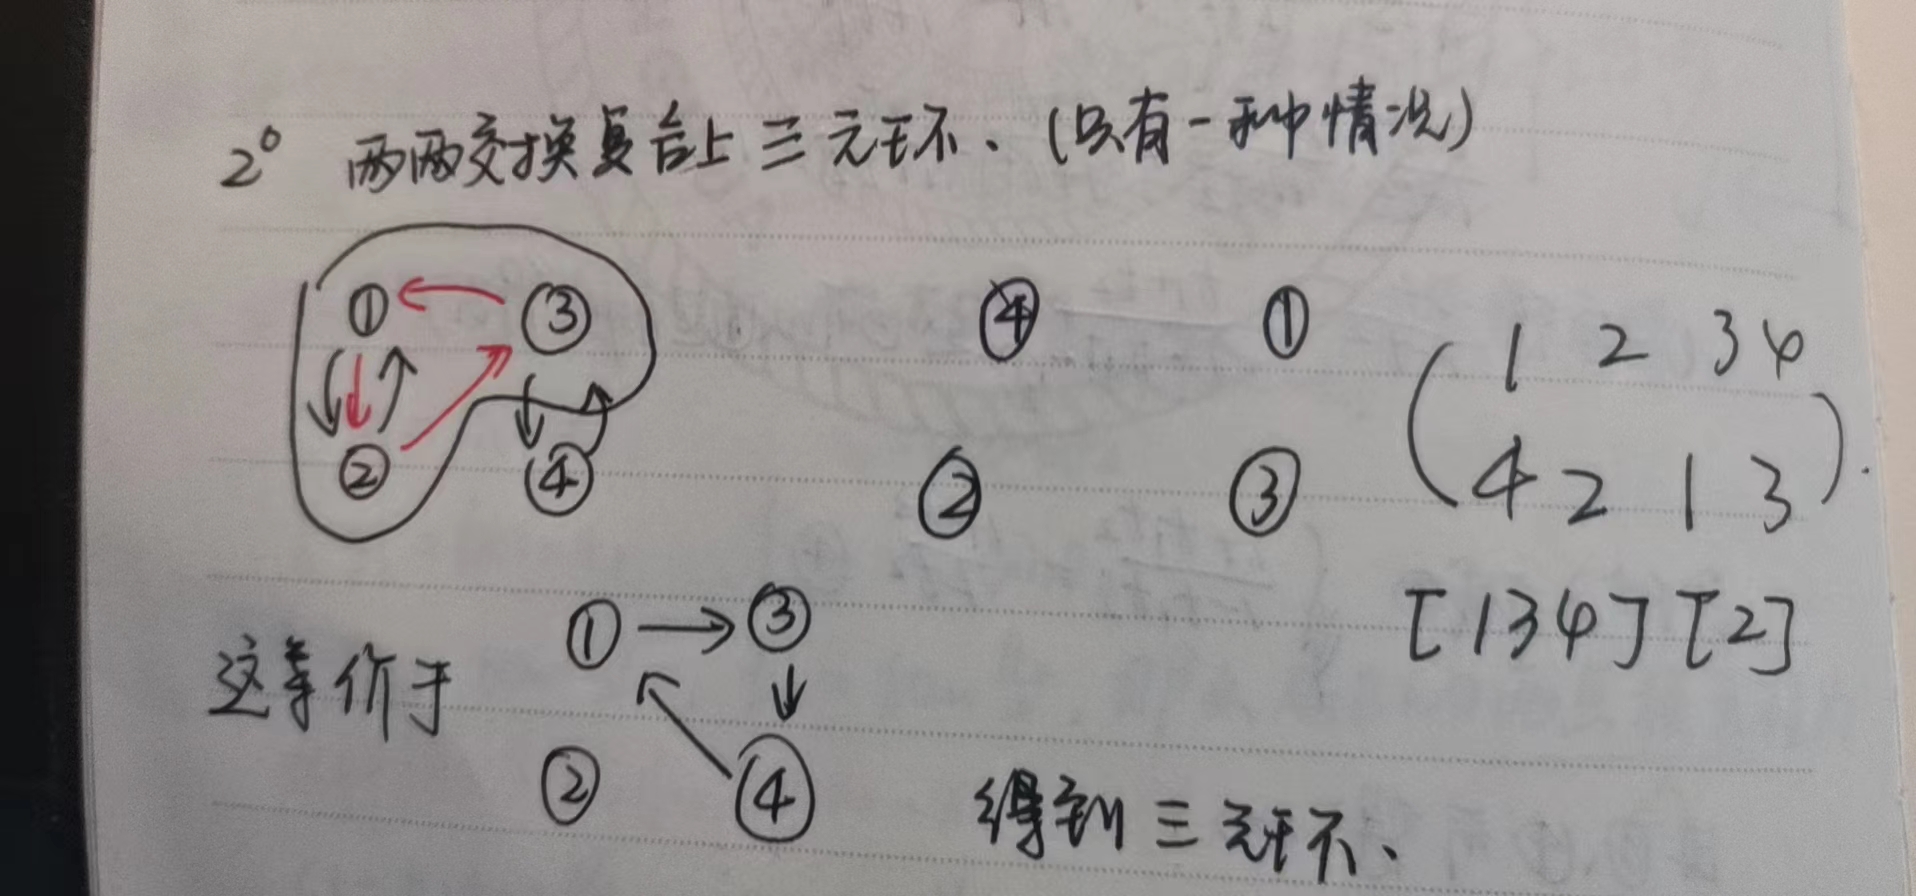 2° 两两交换复合上三元环、(只有一种情况)
① ③ ④ ① 1 2 3 4
② ④ ② ③ 4 2 1 3
[134][2]
这等价于 ① → ③
② ④
得到三元环、